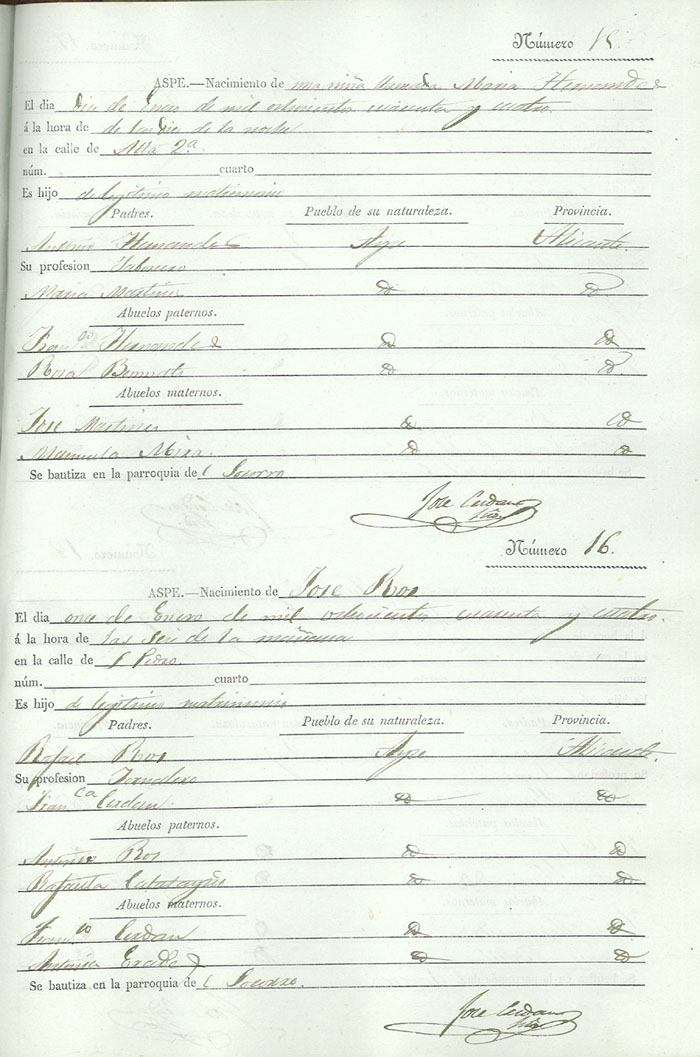 Número 15.
ASPE.—Nacimiento de una niña llamada Maria Hernandez
El dia diez de Enero de mil ochocientos cuarenta y cuatro.
á la hora de de las diez de la noche
en la calle de Alta 2ª
núm. cuarto
Es hijo de legitimo matrimonio
Padres. Pueblo de su naturaleza. Provincia.
Antonio Hernandez Aspe Alicante.
Su profesion Jabonero
Maria Martinez
Abuelos paternos.
Franco Hernandez
Rosa
Abuelos maternos.
Jose Martinez
Manuela Mira
Se bautiza en la parroquia de l Socorro
Jose Cerdan
Número 16.
ASPE.—Nacimiento de Jose Ros
El dia once de Enero de mil ochocientos cuarenta y cuatro.
á la hora de las seis de la mañana
en la calle de S Pedro.
núm. cuarto
Es hijo de legitimo matrimonio
Padres. Pueblo de su naturaleza. Provincia.
Rafael Ros Aspe Alicante.
Su profesion
Franca Cerdan
Abuelos paternos.
Antonio Ros
Rafaela Calatayud
Abuelos maternos.
Franco Cerdan
Antonia
Se bautiza en la parroquia de l Socorro.
Jose Cerdan